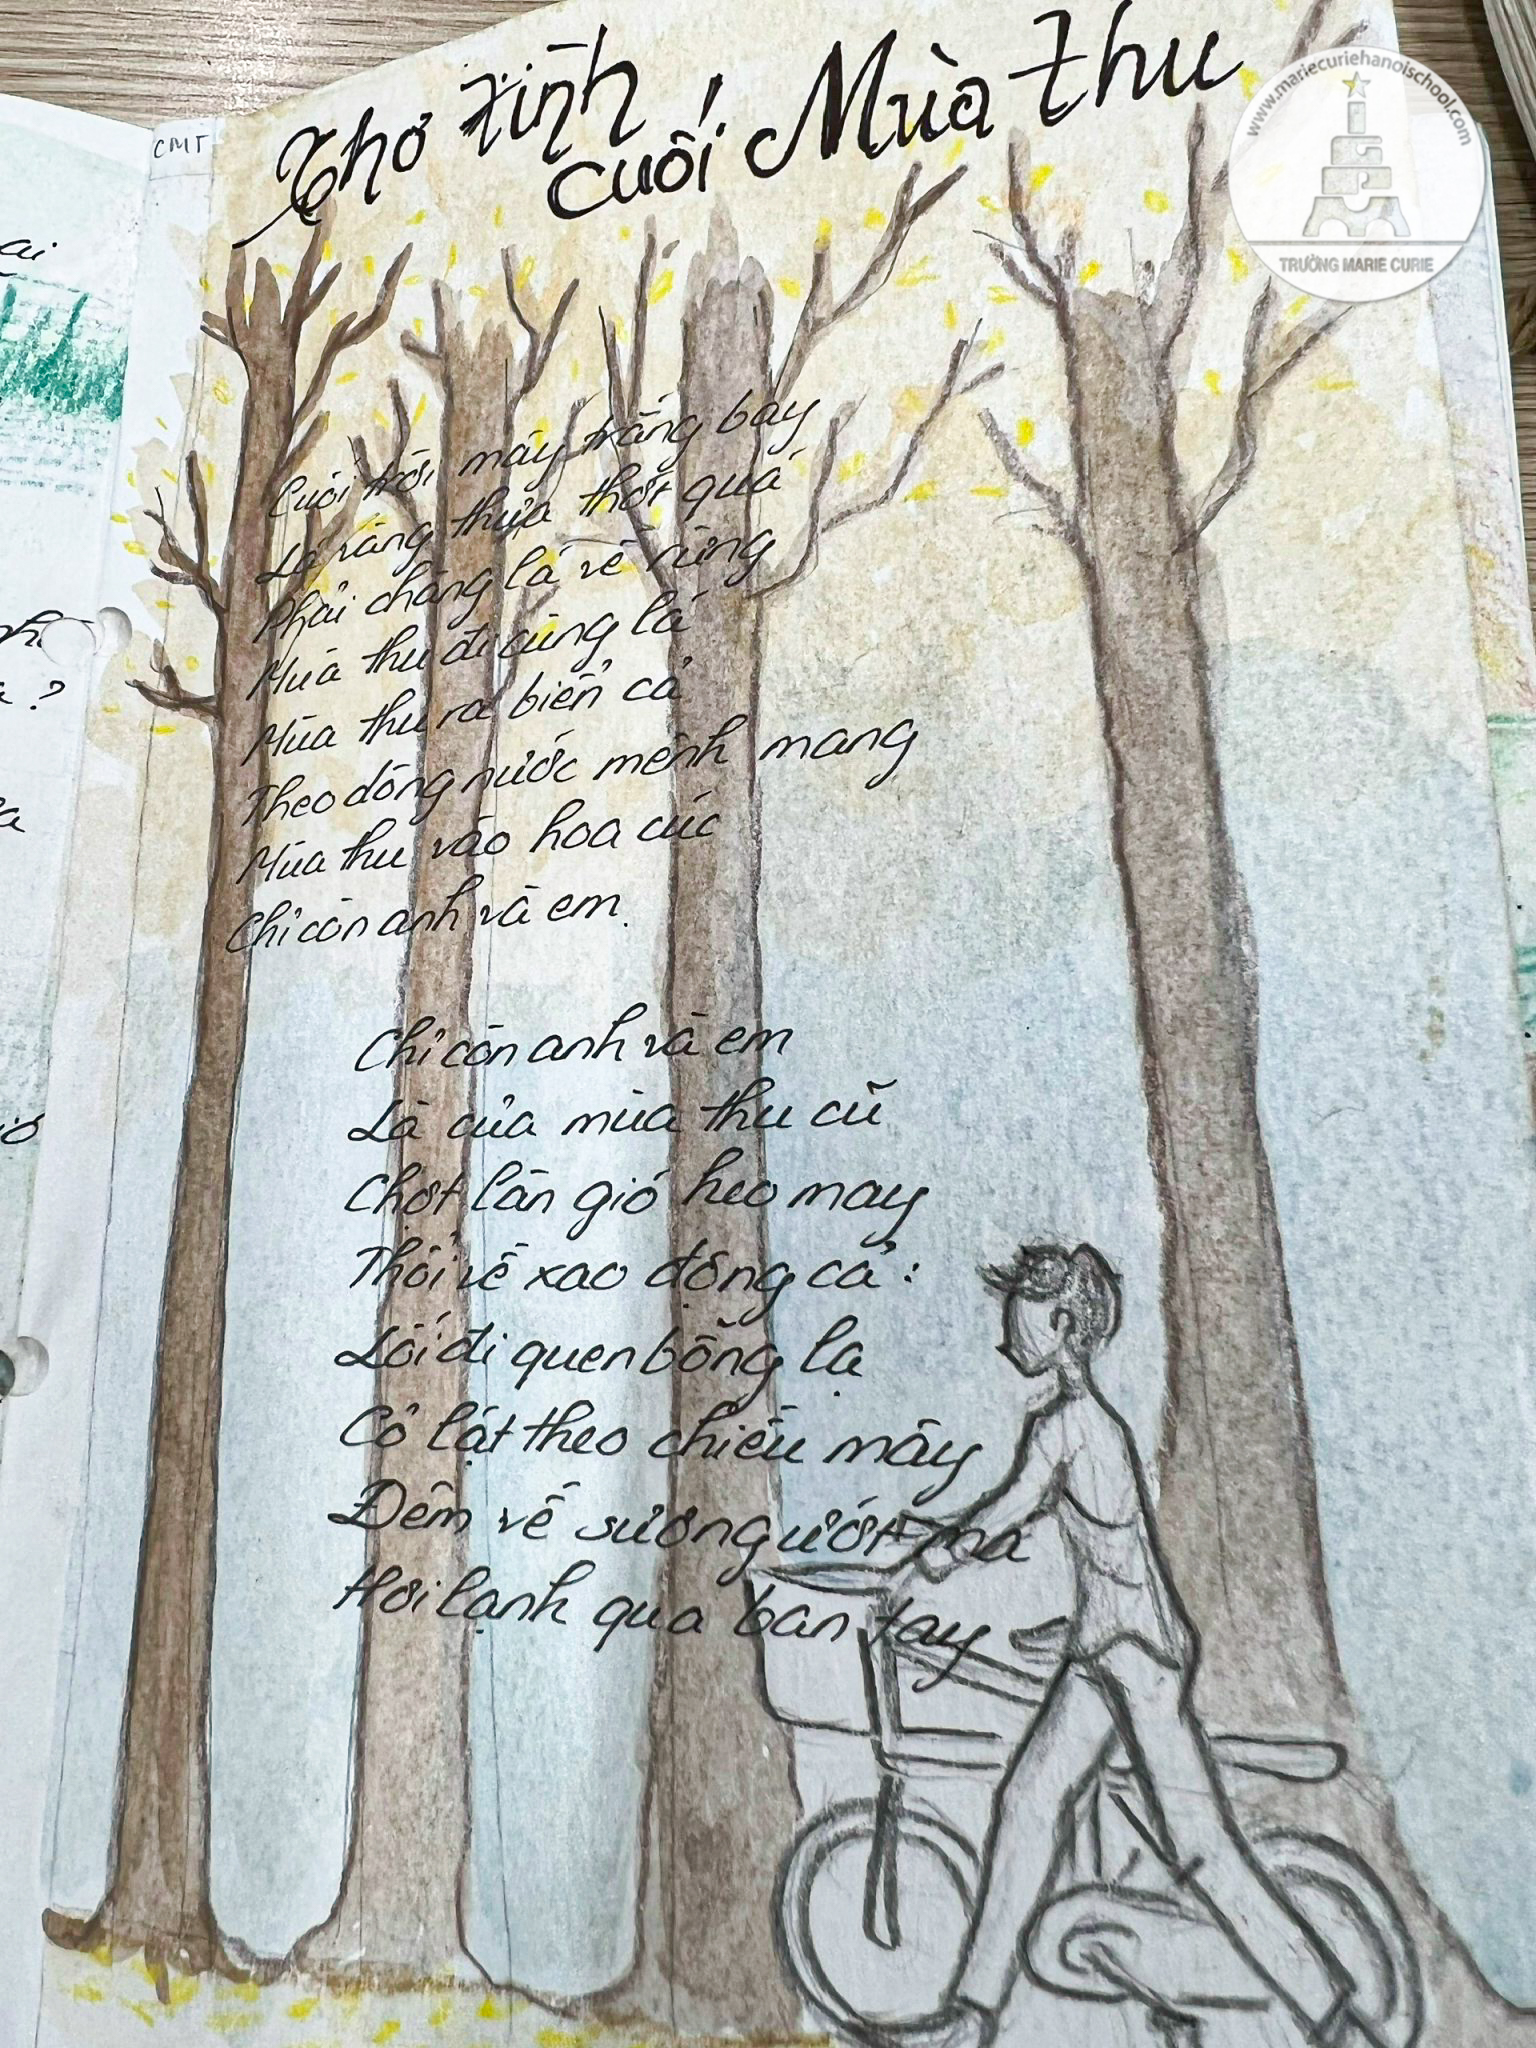 CMT
Thơ tình
cuối Mùa thu
Cuối trời mây trắng bay
Lá vàng thưa thớt quá
Phải chăng lá về rừng
Mùa thu đi cùng lá
Mùa thu ra biển cả
Theo dòng nước mênh mang
Mùa thu vào hoa cúc
Chỉ còn anh và em.
Chỉ còn anh và em
Là của mùa thu cũ
Chợt làn gió heo may
Thổi về xao động cả:
Lối đi quen bỗng lạ
Cỏ lật theo chiều mây
Đêm về sương ướt má
Hơi lạnh qua bàn tay
www.mariecuriehanoischool.com
TRƯỜNG MARIE CURIE